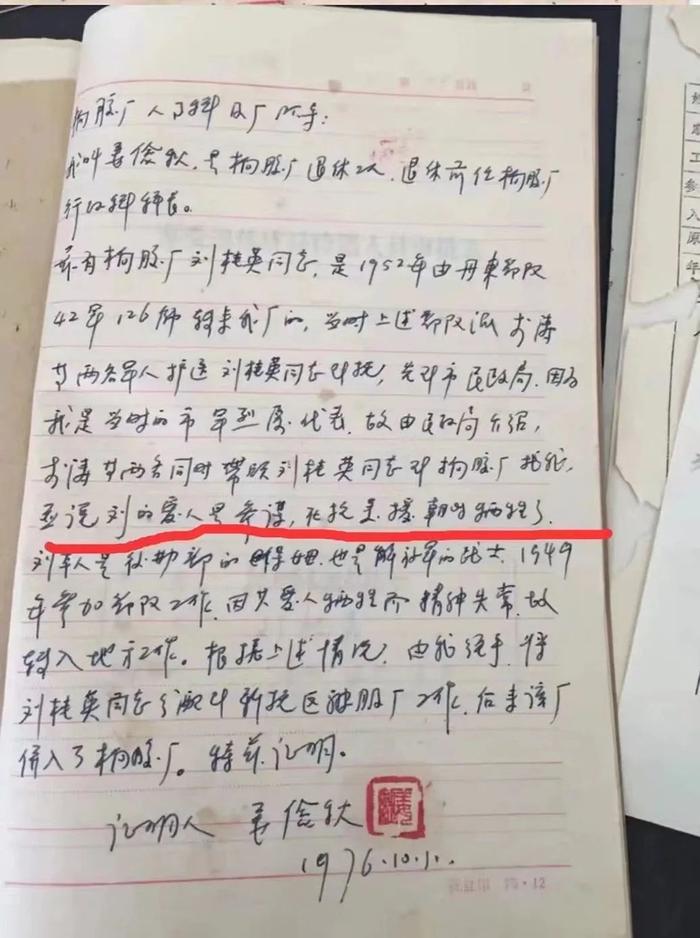 橡胶厂人事科及厂领导：
我叫姜俭秋，是橡胶厂退休工人，退休前任橡胶厂
行政科科长。
兹有橡胶厂刘桂英同志，是1952年由丹东部队
42军126师转来我厂的，当时上述部队派李涛
等两名军人护送刘桂英同志到抚，先到市民政局，因为
我是当时的市军烈属代表，故由民政局介绍，
李涛等两名同时带领刘桂英同志到橡胶厂找我，
并说刘的爱人是参谋，在抗美援朝时牺牲了。
刘本人是后勤部的保姆，也是解放军的战士，1949
年参加部队工作，因其爱人牺牲而精神失常，故
转入地方工作。根据上述情况，由我经手，将
刘桂英同志分配到新抚区被服厂工作，后来该厂
併入了橡胶厂。特兹证明。
证明人 姜俭秋
1976.10.1.
12